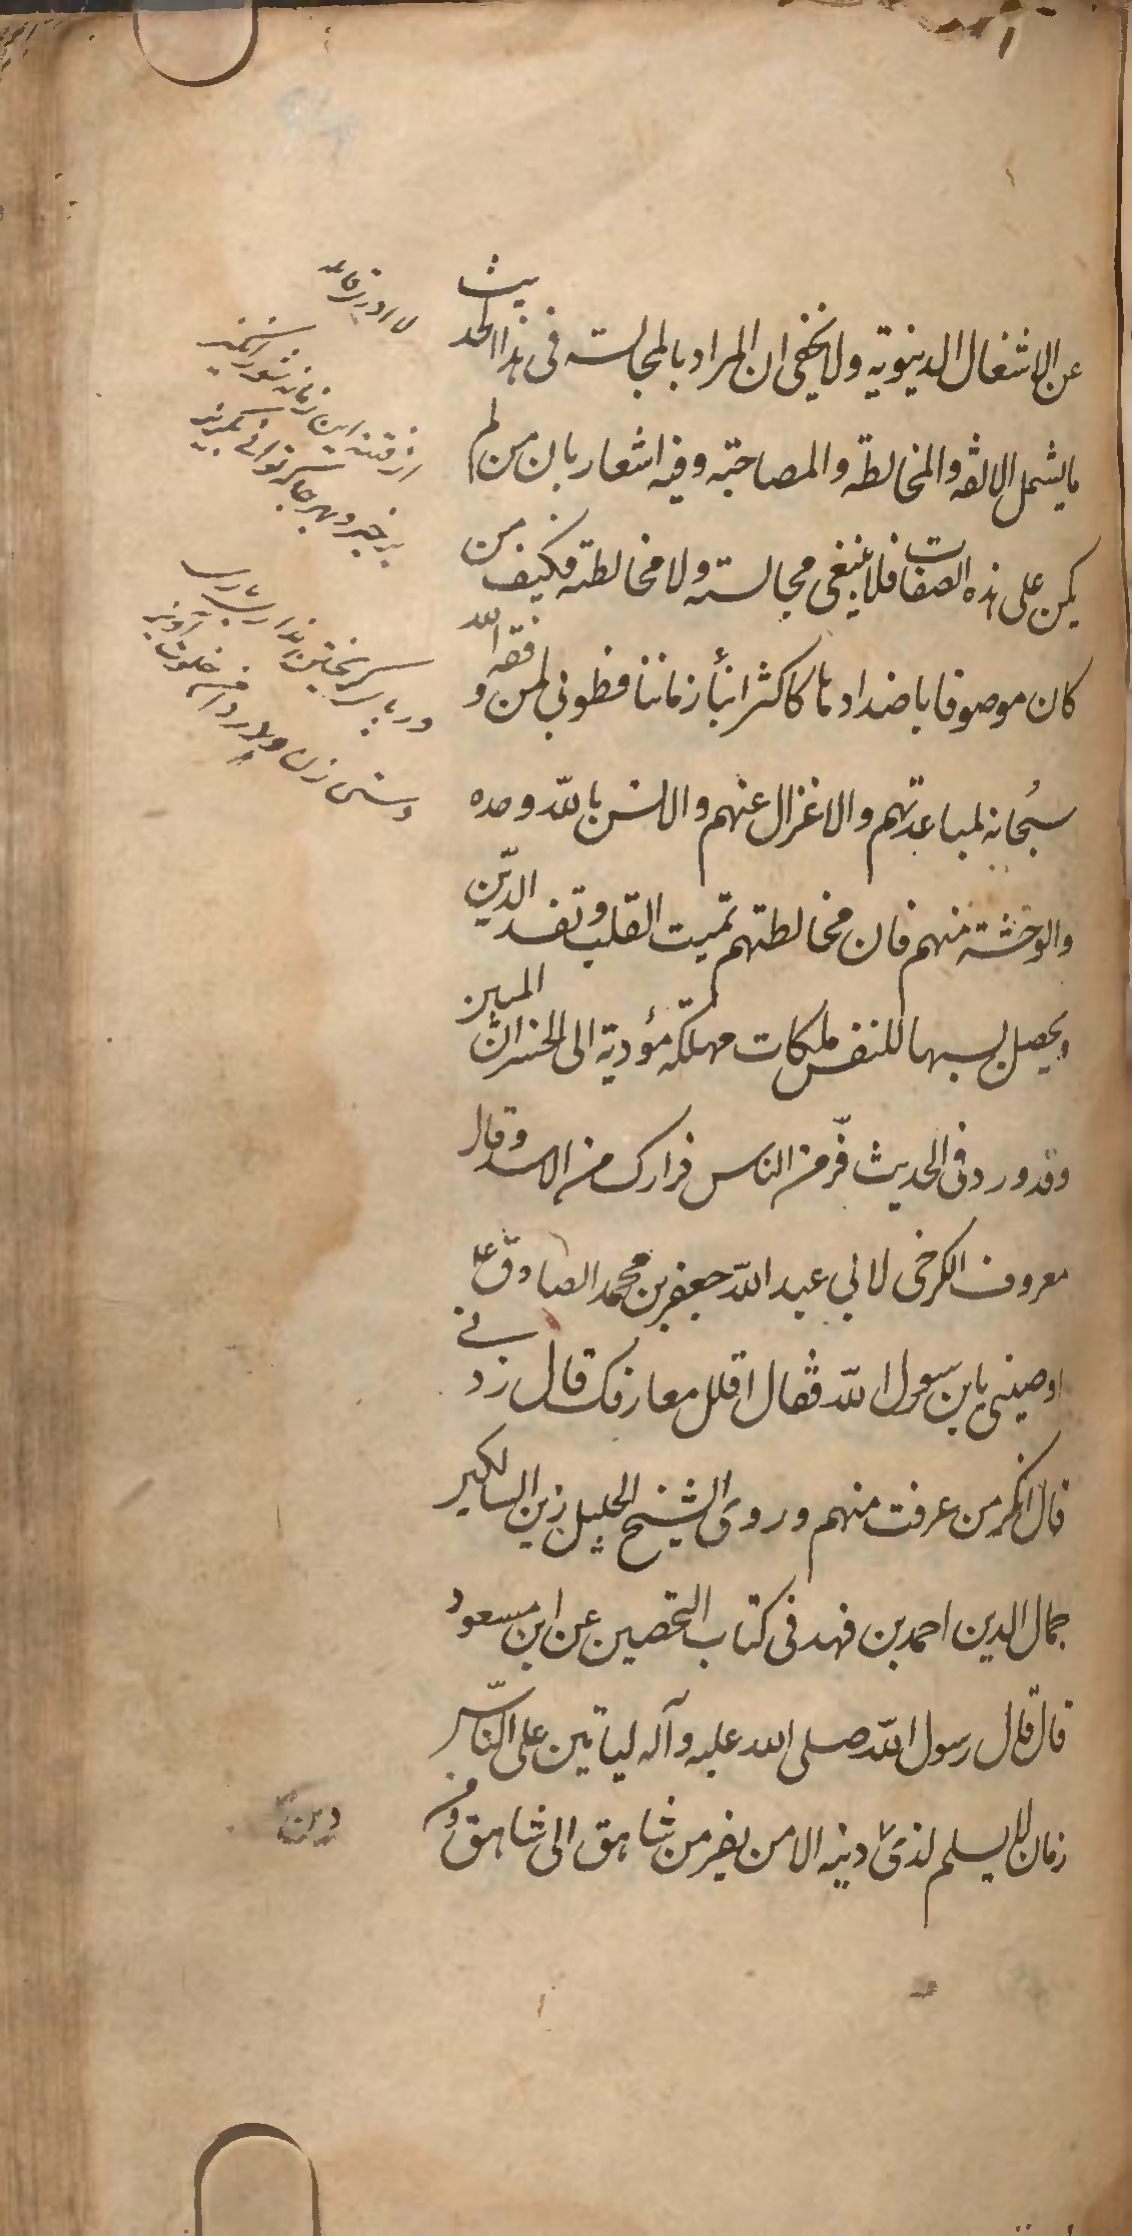 عن الاشغال الدنيوية ولا يخفى ان المراد بالمجالسة فى هذا الحديث
ما يشمل الالفة والمخالطة والمصاحبة وفيه اشعار بان من لم
يكن على هذه الصفات فلا ينبغى مجالسته ولا مخالطته فكيف من
كان موصوفا باضدادها كاكثر ابناء زماننا فطوبى لمن وفقه الله
سبحانه لمباعدتهم والاعتزال عنهم والانس بالله وحده
والوحشة منهم فان مخالطتهم تميت القلب وتفسد الدّين
ويحصل بسببها للنفس ملكات مهلكة مؤدية الى الخسران المبين
وقد ورد فى الحديث فرّ من الناس فرارك من الاسد وقال
معروف الكرخى لابى عبد الله جعفر بن محمد الصادق ع
اوصينى يا بن رسول الله فقال اقلل معارفك قال زدنى
قال انكر من عرفت منهم وروى الشيخ الجليل زين السالكين
جمال الدين احمد بن فهد فى كتاب التحصين عن ابن مسعود
قال قال رسول الله صلى الله عليه وآله لياتين على الناس
زمان لا يسلم لذى دينه الا من يفر من شاهق الى شاهق ومن
دين
لا ادرى قائله
از فتنه اين زمانه شورانگيز
برخيز و بهر جا كه توانى بگريز
ور پاى گريختن ندارى بارى
دستى زن و در دامن خلوت آويز